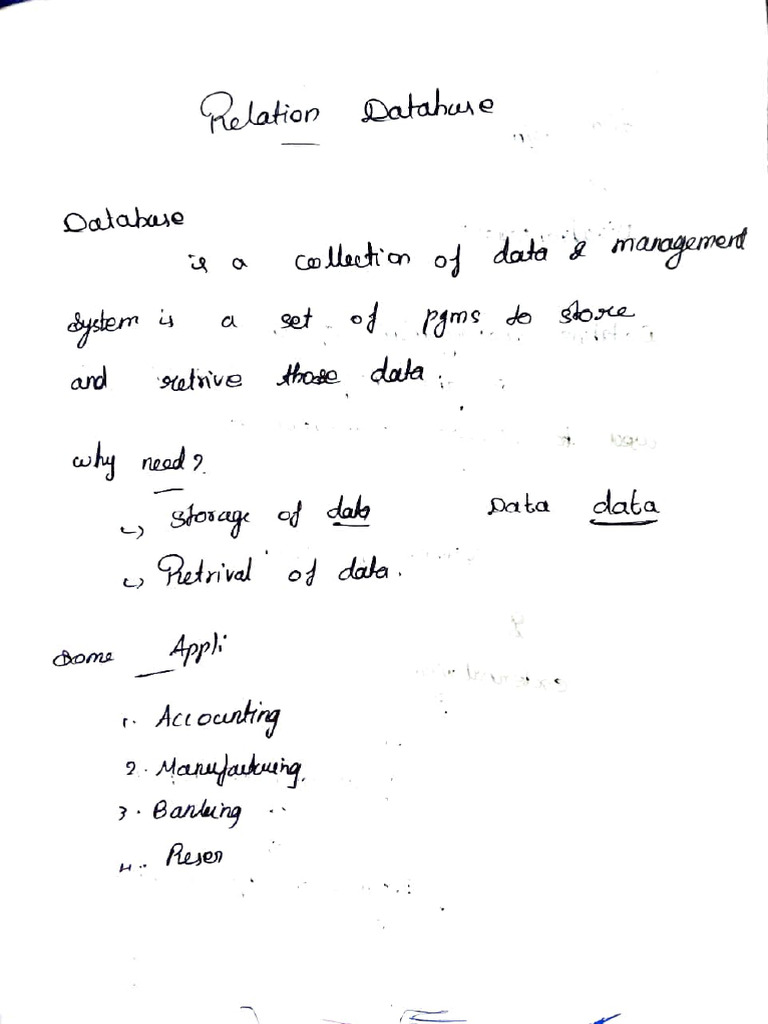 Relation Database
Database
is a collection of data & management
system is a set of pgms to store
and retrive those data.
why need?
↳ Storage of data Data data
↳ Retrival of data.
Some Appli
1. Accounting
2. Manufacturing
3. Banking
4. Reser